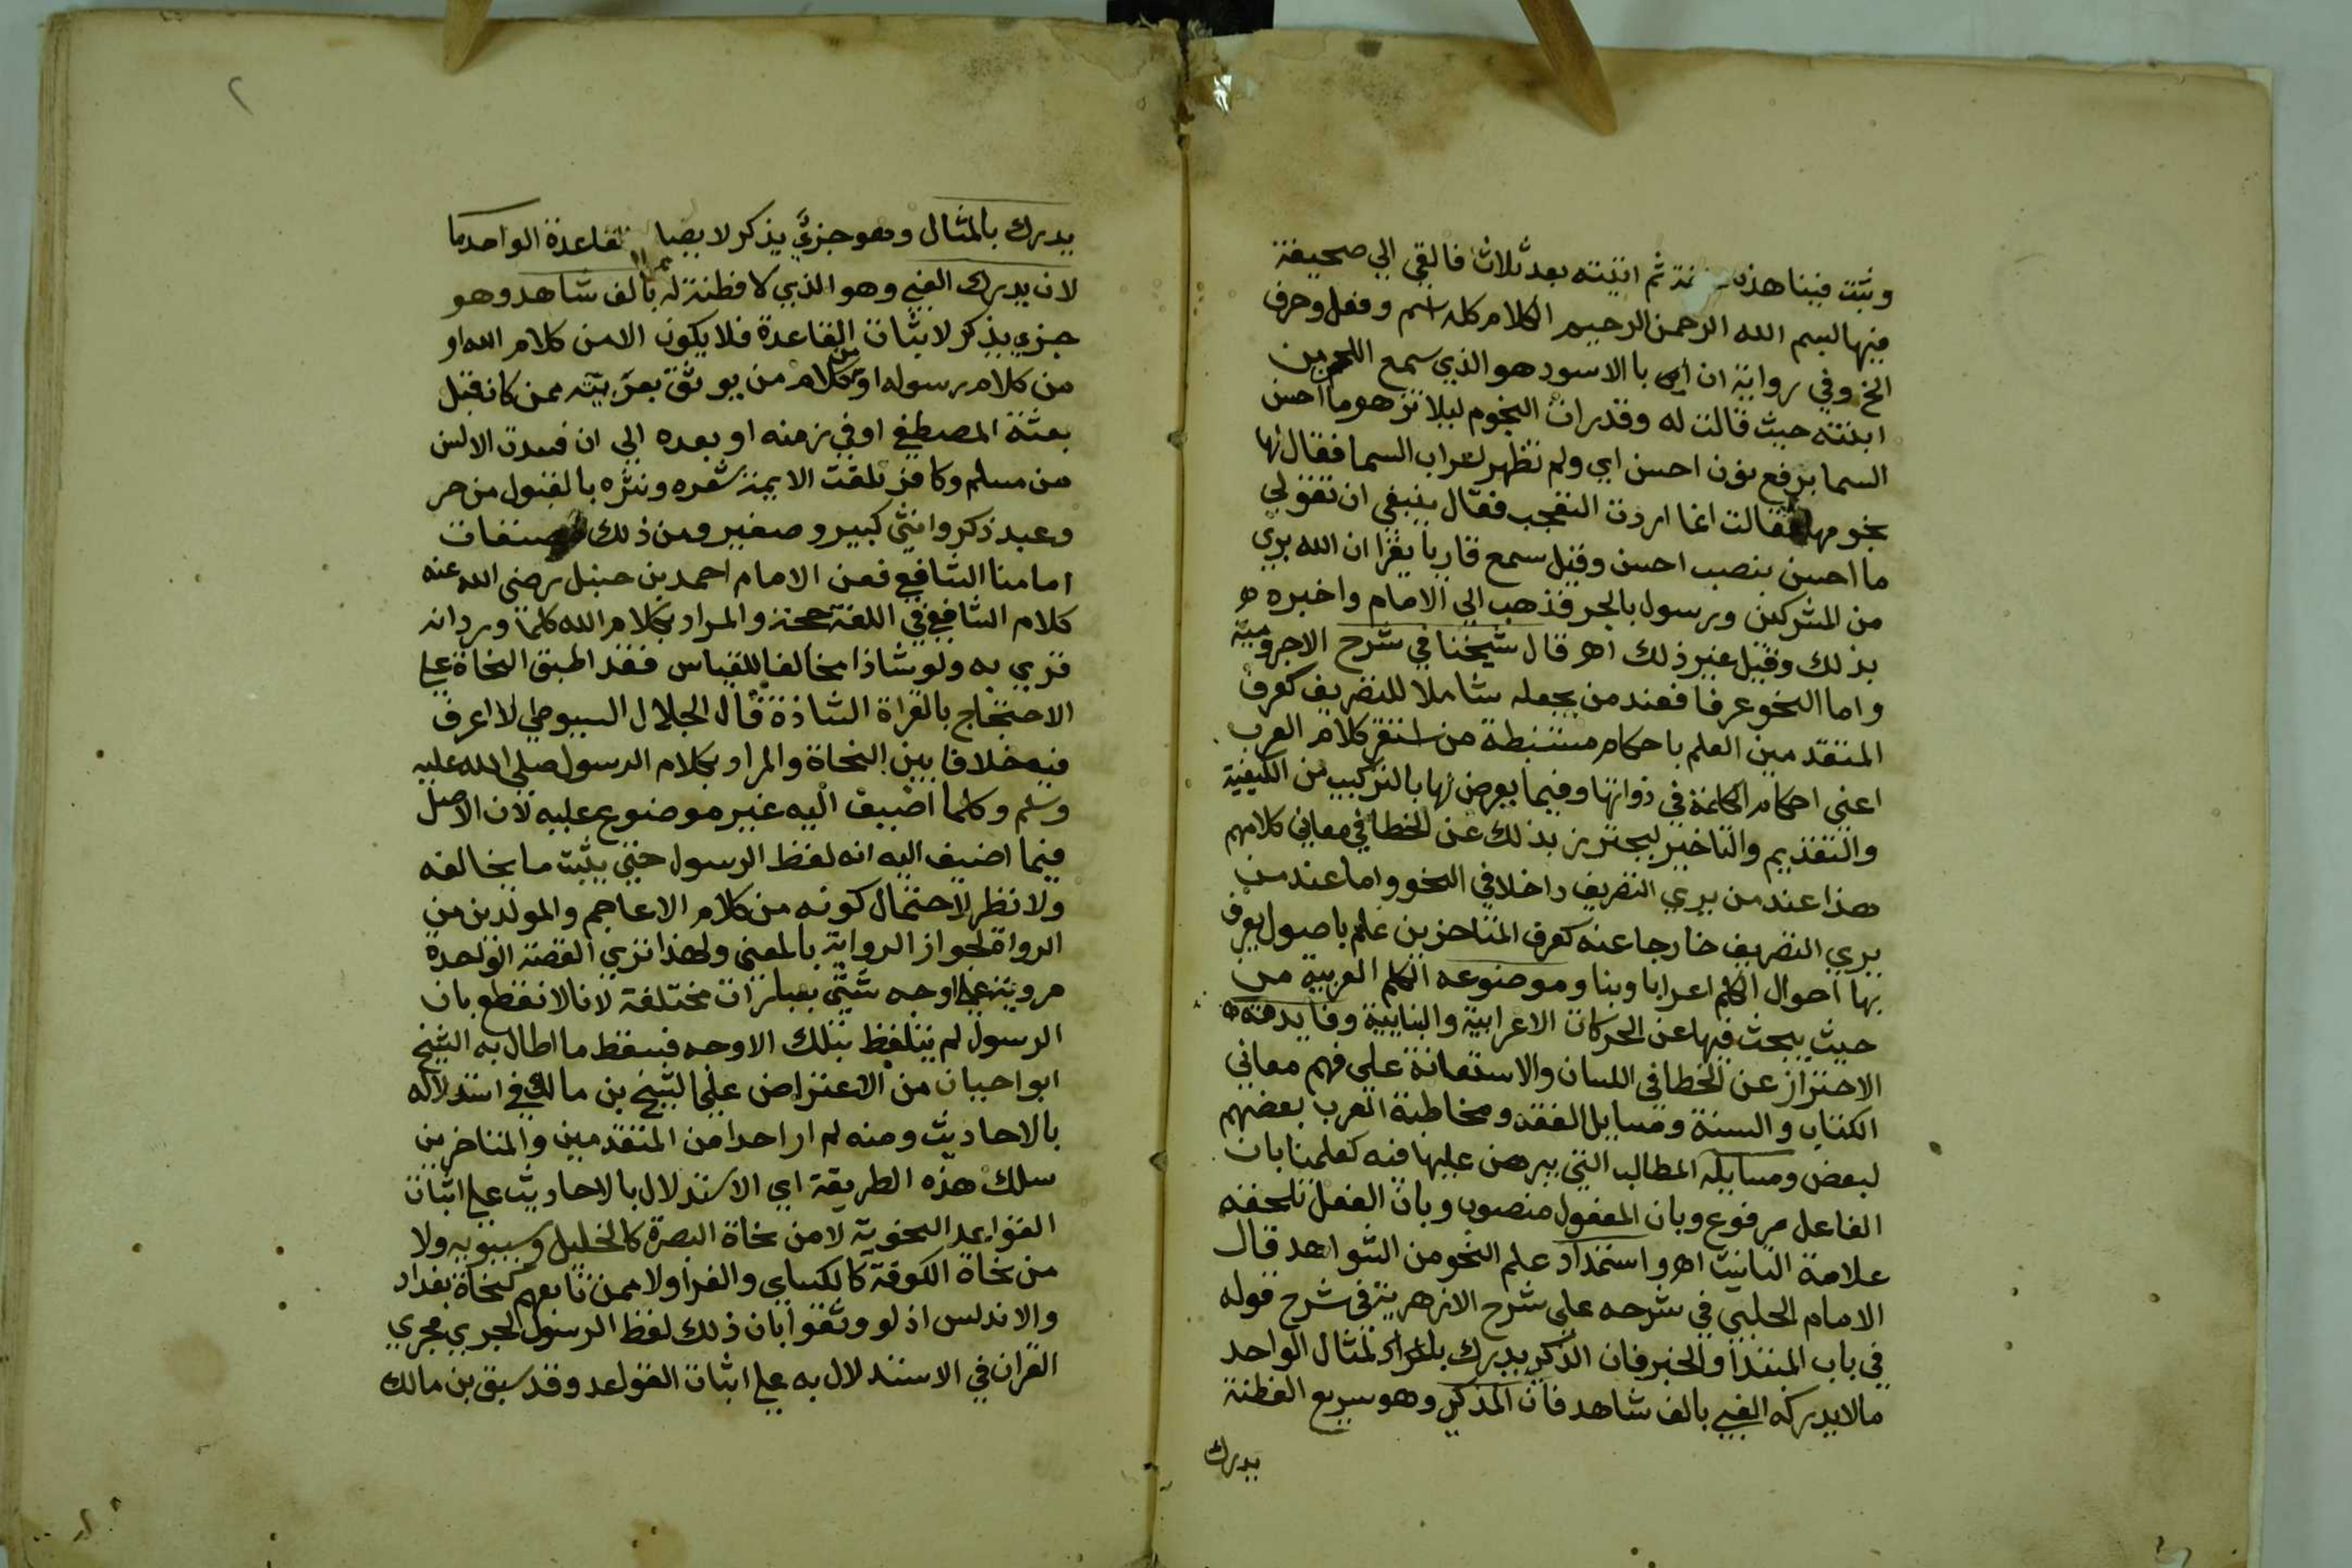 وثبت فينا هذه ثم اتيته بعد ثلاث فالقي الي صحيفة
فيها بسم الله الرحمن الرحيم الكلام كله اسم وفعل وحرف
الخ وفي رواية ان ابا الاسود هو الذي سمع اللحن من
ابنته حيث قالت له وقد رات النجوم ليلا تزهو ما احسن
السما برفع نون احسن اي ولم تظهر اعراب السما فقال لها
نجومها فقالت انما اردت التعجب فقال ينبغي ان تقولي
ما احسن بنصب احسن وقيل سمع قاريا يقرا ان الله بري
من المشركين ورسوله بالجر فذهب الي الامام واخبره
بذلك وقيل غير ذلك اهـ قال شيخنا في شرح الاجرومية
واما النحو عرفا فعند من يجعله شاملا للتصريف كعرف
المتقدمين العلم باحكام مستنبطة من استقر كلام العرب
اعني احكام الكلمة في ذواتها وفيما يعرض لها بالتركيب من الكيفية
والتقديم والتاخير ليحترز بذلك عن الخطا في معاني كلامهم
هذا عند من يري التصريف داخلا في النحو واما عند من
يري التصريف خارجا عنه كعرف المتاخرين علم باصول يعرف
بها احوال الكلم اعرابا وبنا وموضوعه الكلم العربية من
حيث يبحث فيها عن الحركات الاعرابية والبنايية وفايدته
الاحتراز عن الخطا في اللسان والاستعانة علي فهم معاني
الكتاب والسنة ومسايل الفقه ومخاطبة العرب بعضهم
لبعض ومسايله المطالب التي يبرهن عليها فيه كعلمنا بان
الفاعل مرفوع وبان المفعول منصوب وبان الفعل تلحقه
علامة التانيث اهـ واستمداد علم النحو من الشواهد قال
الامام الحلبي في شرحه علي شرح الازهرية في شرح قوله
في باب المبتدا والخبر فان الذكي يدرك بالمثال الواحد
مالا يدركه الغبي بالف شاهد فان المذكي وهو سريع الفطنة
يدرك
٢
يدرك بالمثال وهو جزيي يذكر لايضاح القاعدة الواحد ما
لان يدرك الغبي وهو الذي لا فطنة له بالف شاهد وهو
جزيي يذكر لاثبات القاعدة فلا يكون الا من كلام الله او
من كلام رسوله او من كلام من يوثق بعربيته ممن كان قبل
بعثة المصطفي او في زمنه او بعده الي ان فسدت الالسن
من مسلم وكافر تلقت الايمة شعره ونثره بالقبول من حر
وعبد ذكر وانثي كبير وصغير ومن ذلك مصنفات
امامنا الشافعي فعن الامام احمد بن حنبل رضي الله عنه
كلام الشافعي في اللغة حجة والمراد بكلام الله كلما ورد انه
قري به ولو شاذا مخالفا للقياس فقد اطبق النحاة علي
الاحتجاج بالقراة الشاذة قال الجلال السيوطي لا اعرف
فيه خلافا بين النحاة والمراد بكلام الرسول صلي الله عليه
وسلم وكلما اضيف اليه غير موضوع عليه لان الاصل
فيما اضيف اليه انه لفظ الرسول حتي يثبت ما يخالفه
ولا نظر لاحتمال كونه من كلام الاعاجم والمولدين من
الرواة لجواز الرواية بالمعني ولهذا تري القصة الواحدة
مروية علي اوجه شتي بعبارات مختلفة لانا لا نقطع بان
الرسول لم يتلفظ بتلك الاوجه فسقط ما اطال به الشيخ
ابو احيان من الاعتراض علي الشيخ بن مالك في استدلاله
بالاحاديث ومنه لم ار احدا من المتقدمين والمتاخرين
سلك هذه الطريقة اي الاستدلال بالاحاديث علي اثبات
القواعد النحوية لا من نحاة البصرة كالخليل وسيبويه ولا
من نحاة الكوفة كالكساي والفرا ولا ممن تابعهم كنحاة بغداد
والاندلس اذ لو وثقوا بان ذلك لفظ الرسول لجري مجري
القران في الاستدلال به علي اثبات القواعد وقد سبق بن مالك